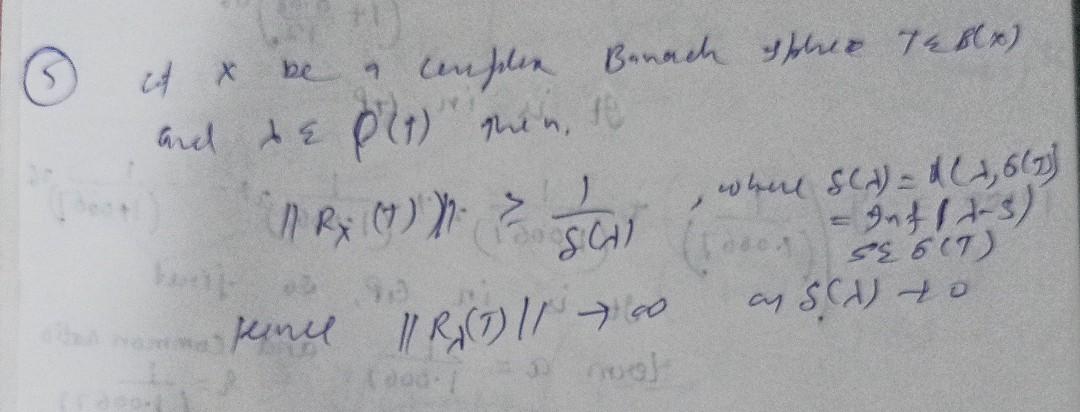 ⑤ if X be a complex Banach space T ∈ B(X)
and λ ∈ ρ(T) then,
||R_λ(T)|| ≥ 1/δ(λ), where δ(λ) = d(λ, σ(T))
= inf |λ-s|
s ∈ σ(T)
Hence ||R_λ(T)|| → ∞ as δ(λ) → 0